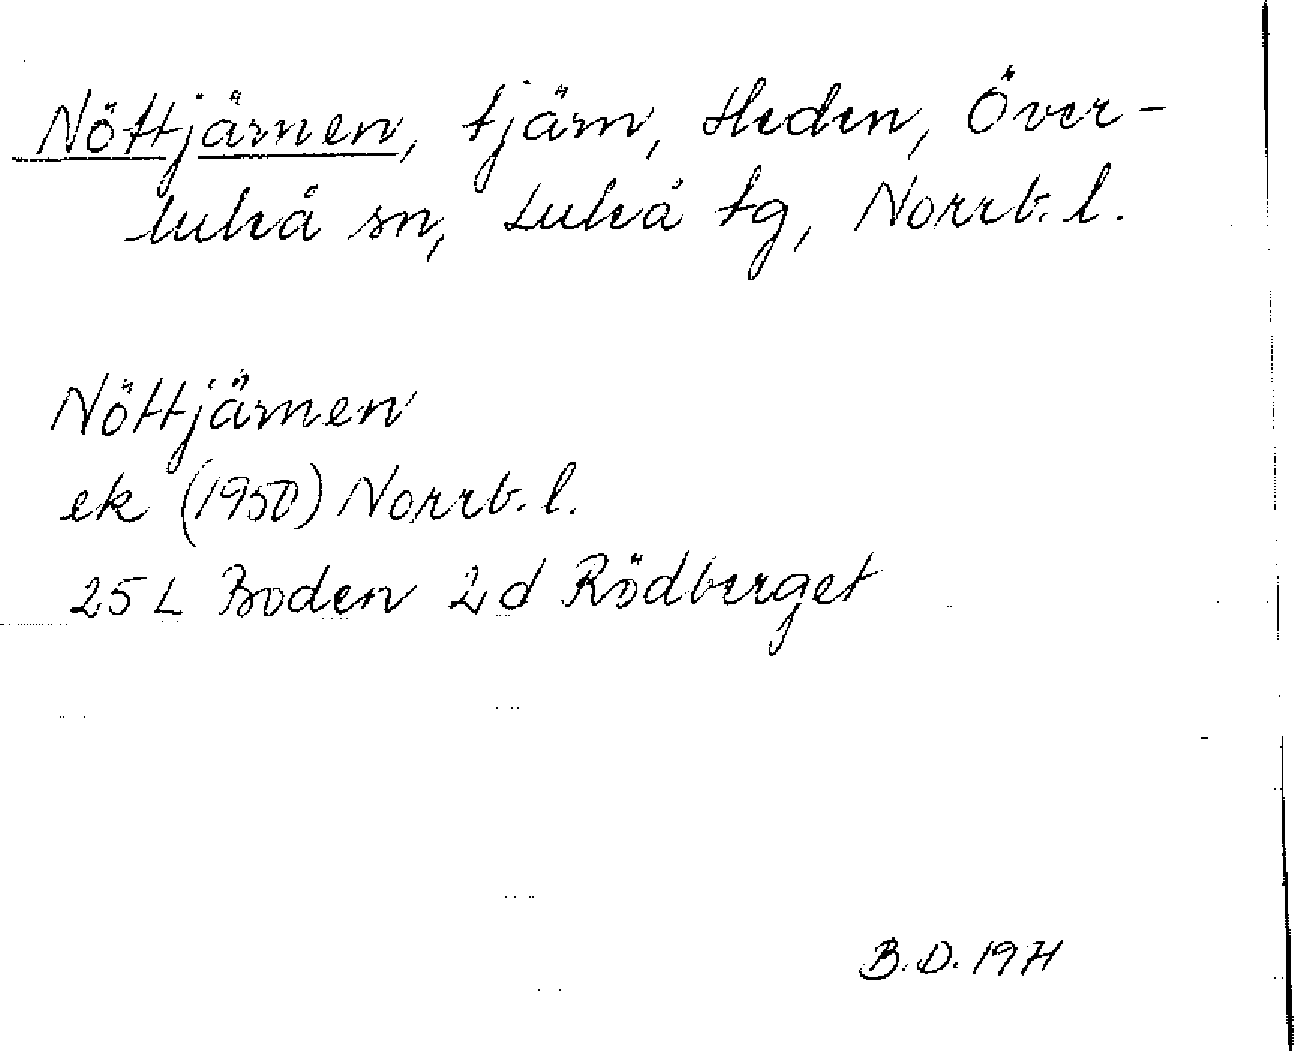 Nöttjärnen, tjärn, Heden, Över-
luleå sn, Luleå tg, Norrb. l.
Nöttjärnen
ek (1950) Norrb. l.
25 L Boden 2d Rödberget
B.D. 1971